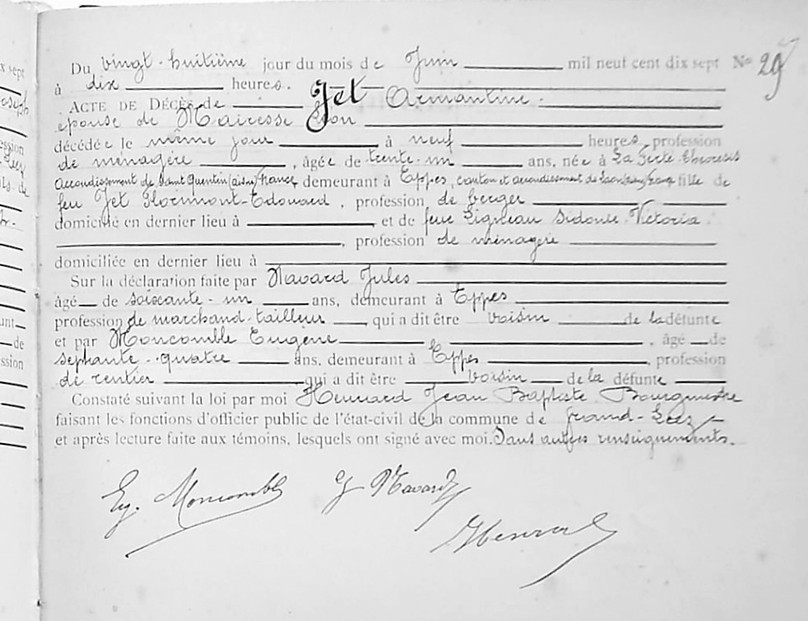 Du vingt-huitième jour du mois de Juin mil neuf cent dix sept No 29
à dix heures.
ACTE DE DÉCÈS de Jet Armantine.
épouse de Mairesse Léon
décédée le même jour à neuf heures, profession
de ménagère, âgée de trente-un ans, née à La Ferte Chevresis
arrondissement de Saint Quentin (aisne) france demeurant à Eppes, canton et arrondissement de Laon (aisne) france fille de
feu Jet Édouard, profession de berger
domicilié en dernier lieu à et de feue Ligneau Sidonie Victoria
, profession de ménagère
domiciliée en dernier lieu à
Sur la déclaration faite par Navard Jules
âgé de soixante-un ans, demeurant à Eppes
profession de marchand-tailleur, qui a dit être voisin de la défunte
et par Moncomble Eugène, âgé de
septante-quatre ans, demeurant à Eppes, profession
de rentier qui a dit être voisin de la défunte
Constaté suivant la loi par moi Henrard Jean Baptiste Bourgmestre
faisant les fonctions d'officier public de l'état-civil de la commune de Grand-Leez
et après lecture faite aux témoins, lesquels ont signé avec moi. Sans autres renseignements.
Eug. Moncomble J Navard
Henrard